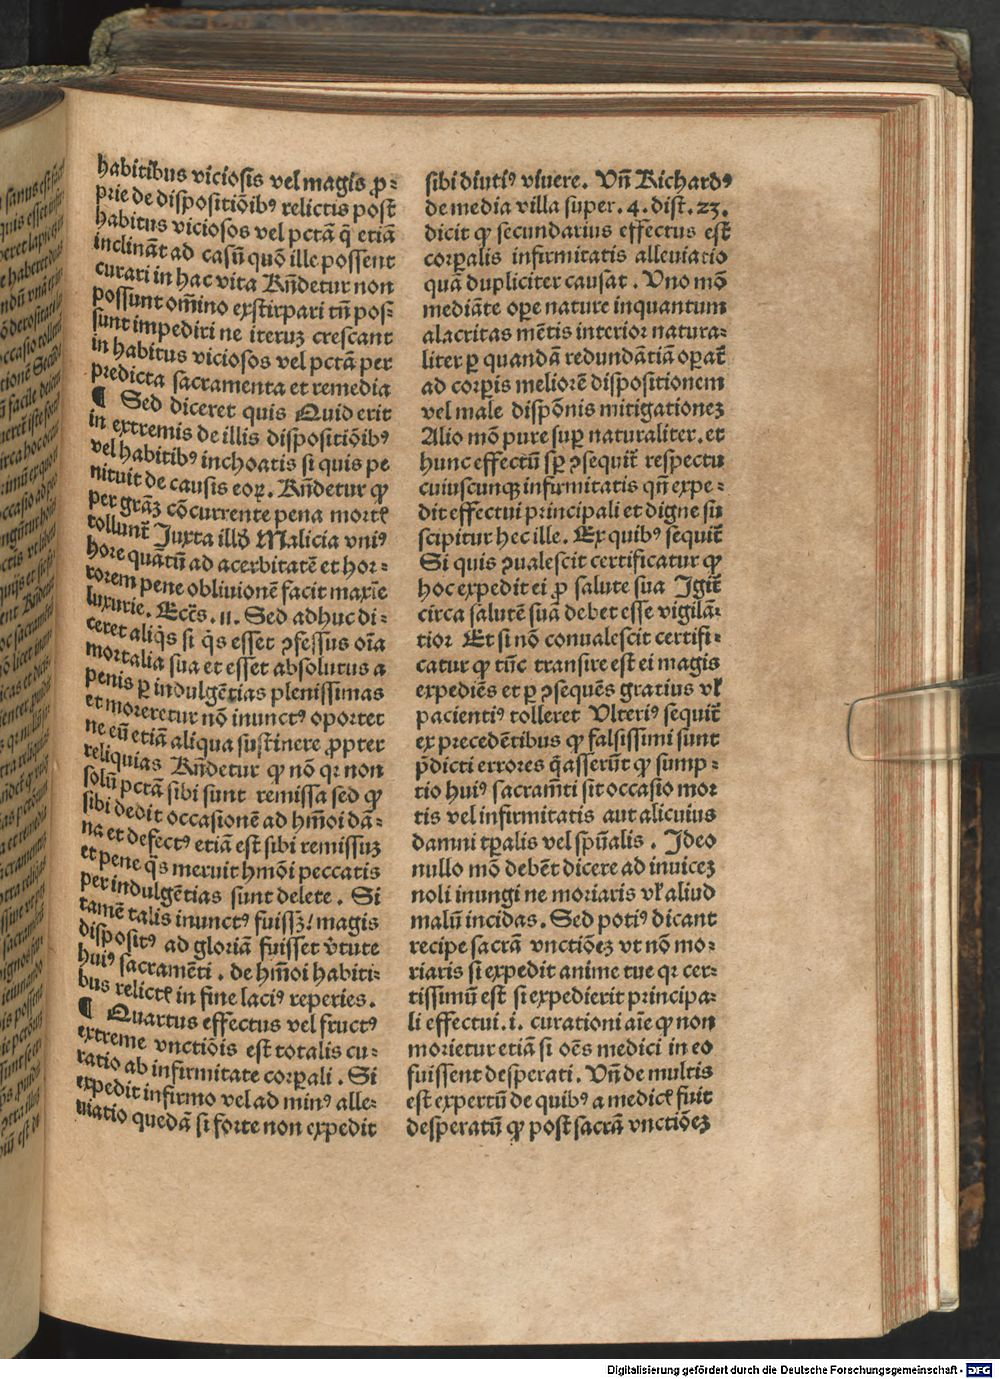 habitibus viciosis vel magis ꝓ⸗
prie de dispositiõibꝰ relictis post̃
habitus viciosos vel pctã q̃ etiã
inclinãt ad casũ quõ ille possent
curari in hac vita Rñdetur non
possunt om̃ino exstirpari tñ pos⸗
sunt impediri ne iteruꝫ crescant
in habitus viciosos vel pctã per
predicta sacramenta et remedia
¶ Sed diceret quis Quid erit
in extremis de illis dispositiõibꝰ
vel habitibꝰ inchoatis si quis pe
nituit de causis eoꝝ. Rñdetur ꝙ
per grãꝫ cõcurrente pena mortꝭ
tollunt̃ Juxta illḋ Malicia vniꝰ
hore quatũ ad acerbitatẽ et hor⸗
rorem pene obliuionẽ facit maxĩe
luxurie. Eccs̃. 11. Sed adhuc di⸗
ceret aliq̃s si q̃s esset ꝯfessus oĩa
mortalia sua et esset absolutus a
penis ꝑ indulgẽtias plenissimas
et moreretur nõ inunctꝰ oportet
ne eũ etiã aliqua sustinere ꝓpter
reliquias Rñdetur ꝙ nõ qꝛ non
solũ pctã sibi sunt remissa sed ꝙ
sibi dedit occasionẽ ad hm̃oi dã⸗
na et defectꝰ etiã est sibi remissuꝫ
et pene q̃s meruit hmõi peccatis
per indulgẽtias sunt delete. Si
tamẽ talis inunctꝰ fuissꝫ! magis
dispositꝰ ad gloriã fuisset v̾tute
huiꝰ sacramẽti. de hm̃oi habiti⸗
bus relictꝭ in fine laciꝰ reperies.
¶ Quartus effectus vel fructꝰ
extreme vnctiõis est totalis cu⸗
ratio ab infirmitate corꝑali. Si
expedit infirmo vel ad minꝰ alle⸗
uiatio quedã si forte non expedit
sibi diutiꝰ viuere. Vñ Richardꝰ
de media villa super. 4. dist. 23.
dicit ꝙ secundarius effectus est̃
corꝑalis infirmitatis alleuiatio
quã dupliciter causat. Vno mõ
mediãte oꝑe nature inquantum
alacritas mẽtis interior natura⸗
liter ꝑ quandã redundãtiã oꝑat̃
ad corꝑis meliorẽ dispositionem
vel male dispõnis mitigationeꝫ
Alio mõ pure suꝑ naturaliter. et
hunc effectũ sꝑ ꝯsequit̃ respectu
cuiuscunqꝫ infirmitatis qñ expe⸗
dit effectui principali et digne su
scipitur hec ille. Ex quibꝰ sequit̃
Si quis ꝯualescit certificatur ꝙ
hoc expedit ei ꝓ salute sua Jgit̃
circa salutẽ suã debet esse vigilã⸗
tior Et si nõ conualescit certifi⸗
catur ꝙ tũc transire est ei magis
expediẽs et ꝑ ꝯsequẽs gratius vꝉ
pacientiꝰ tolleret Vlteriꝰ sequit̃
ex precedẽtibus ꝙ falsissimi sunt
p̃dicti errores q̃ asserũt ꝙ sump⸗
tio huiꝰ sacram̃ti sit occasio mor
tis vel infirmitatis aut alicuius
damni tꝑalis vel spũalis. Jdeo
nullo mõ debẽt dicere ad inuiceꝫ
noli inungi ne moriaris vꝉ aliud
malũ incidas. Sed potiꝰ dicant
recipe sacrã vnctiõeꝫ vt nõ mo⸗
riaris si expedit anime tue qꝛ cer⸗
tissimũ est si expedierit principa⸗
li effectui. i. curationi aĩe ꝙ non
morietur etiã si oẽs medici in eo
fuissent desperati. Vñ de multis
est expertũ de quibꝰ a medicꝭ fuit
desperatũ ꝙ post sacrã vnctiõeꝫ
Digitalisierung gefördert durch die Deutsche Forschungsgemeinschaft - DFG